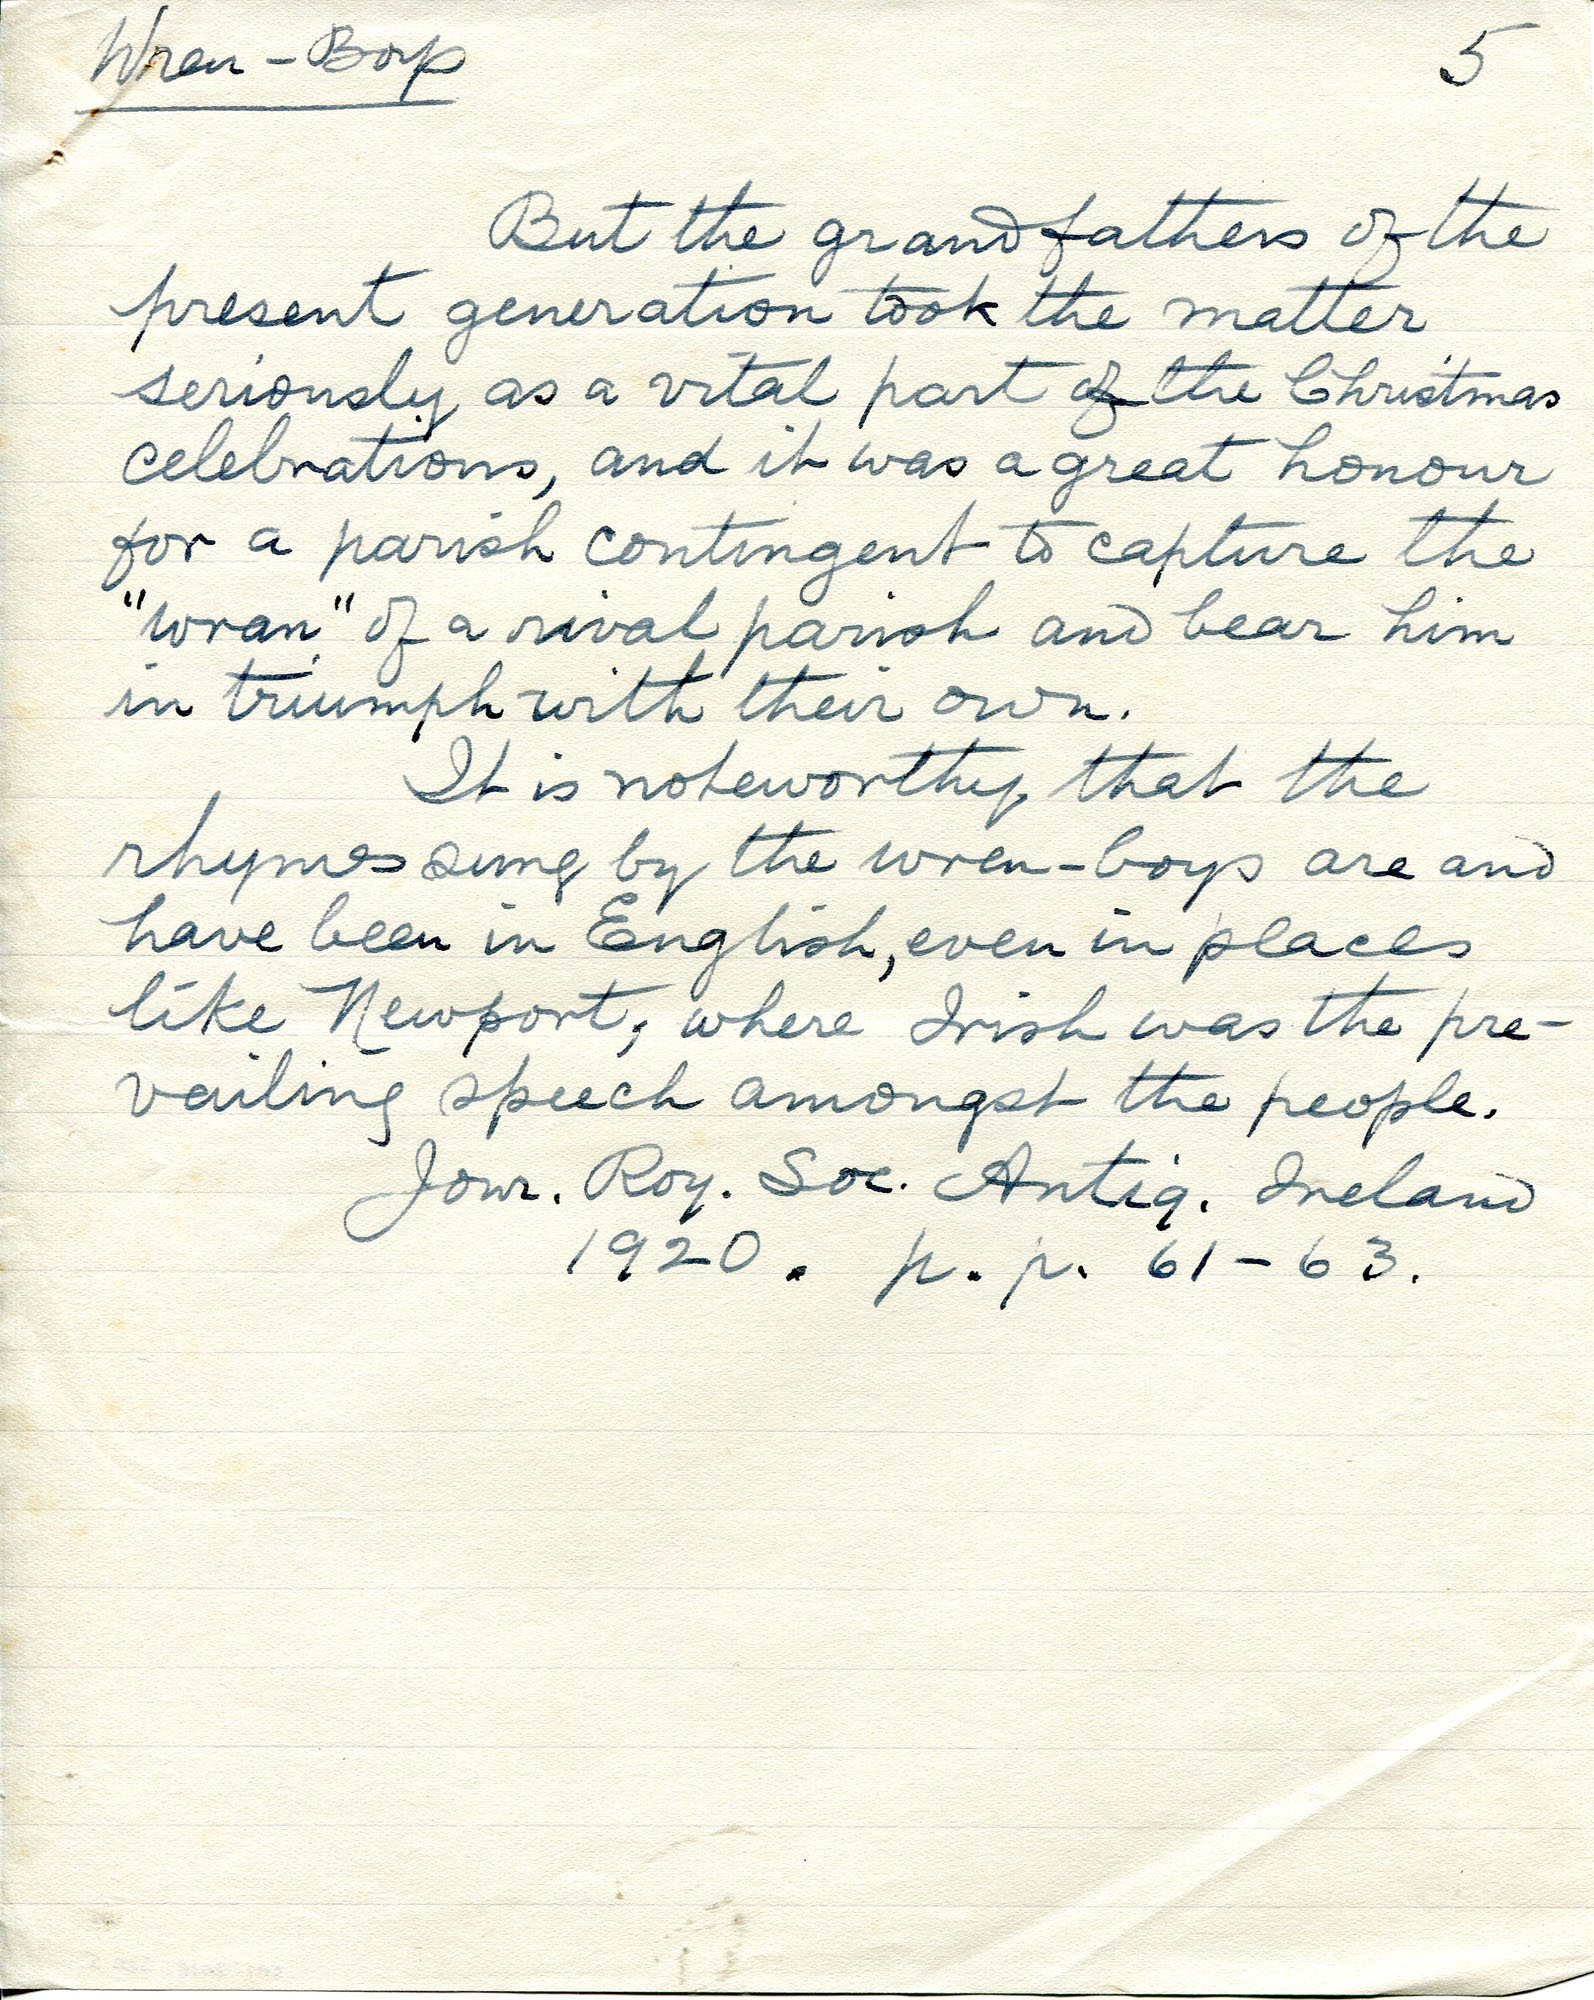 Wren-Boys 5
But the grandfathers of the
present generation took the matter
seriously as a vital part of the Christmas
celebrations, and it was a great honour
for a parish contingent to capture the
"wran" of a rival parish and bear him
in triumph with their own.
It is noteworthy, that the
rhymes sung by the wren-boys are and
have been in English, even in places
like Newport, where Irish was the pre-
vailing speech amongst the people.
Jour. Roy. Soc. Antiq. Ireland
1920. p. p. 61-63.